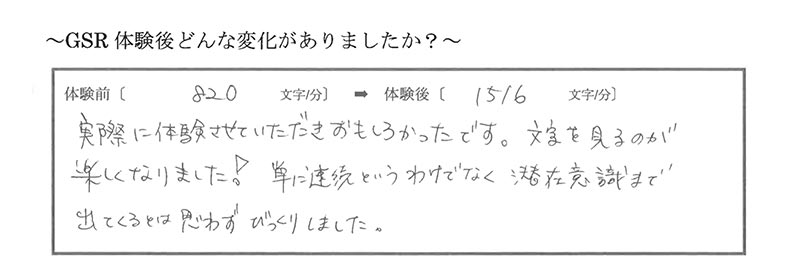 ～GSR 体験後どんな変化がありましたか？～
体験前〔 820 文字/分〕 ➡ 体験後〔 1516 文字/分〕
実際に体験させていただきおもしろかったです。文字を見るのが
楽しくなりました！ 単に連続というわけでなく 潜在意識まで
出てくるとは思わず びっくりしました。